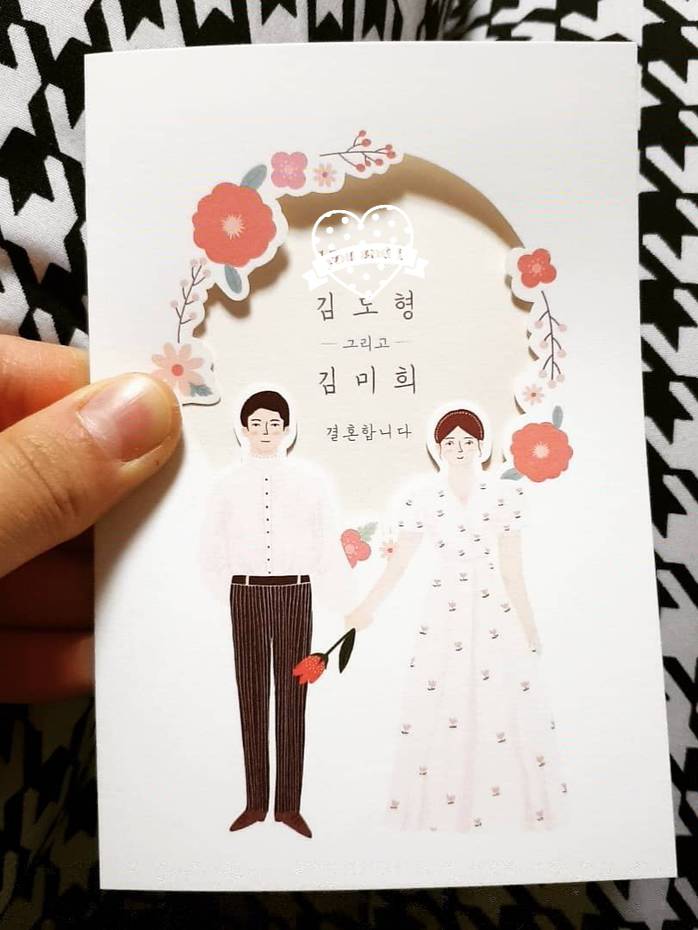 김도형
그리고
김미희
결혼합니다